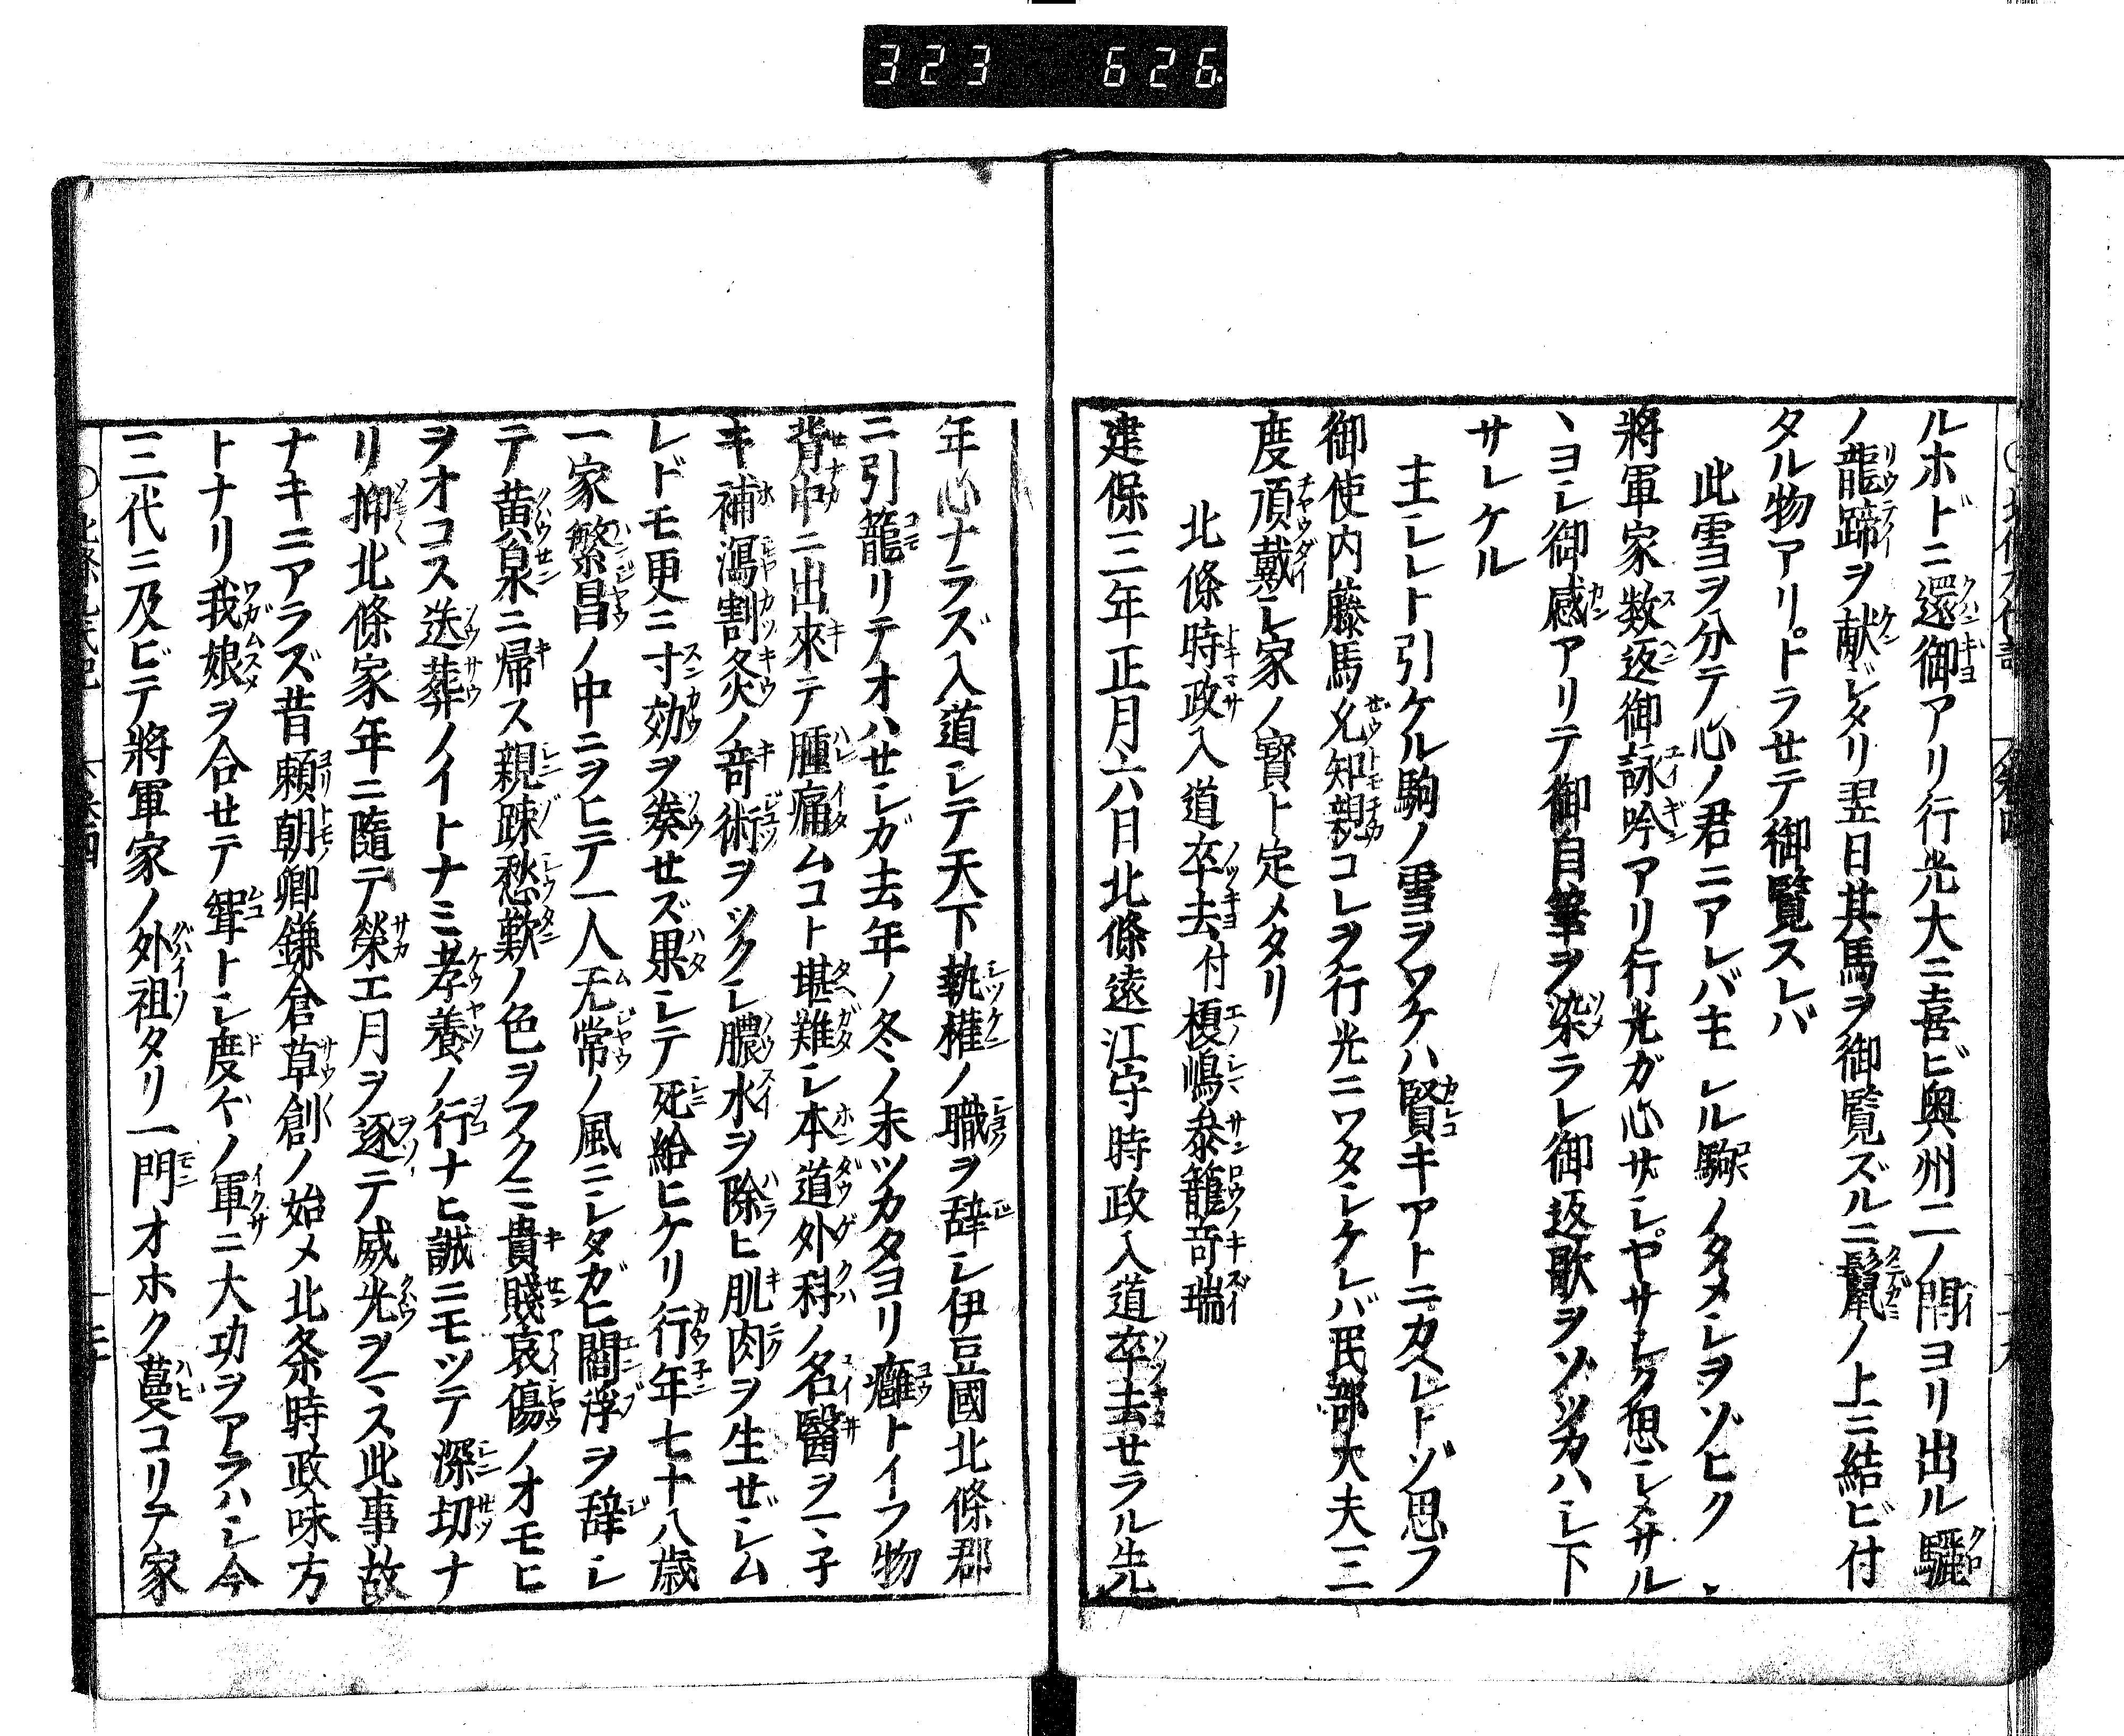 323 626
ルホドニ還御アリ行光大ニ喜ビ奥州二ノ関ヨリ出ル驪
ノ龍蹄ヲ献ジタリ翌日其馬ヲ御覧ズルニ鬣ノ上ニ結ビ付
タル物アリトラセテ御覧スレバ
此雪ヲ分テ心ノ君ニアレバ主シル駒ノタメシヲゾヒク
將軍家数返御詠吟アリ行光ガ心ザシヤサシク思シメサル
ヽヨシ御感アリテ御自筆ヲ染ラレ御返歌ヲゾツカハシ下
サレケル
主シレト引ケル駒ノ雪ヲワケハ賢キアトニカヘレトゾ思フ
御使内藤馬允知親コレヲ行光ニワタシケレバ民部大夫三
度頂戴シ家ノ寳ト定メタリ
北條時政入道卒去付榎嶋叅籠竒瑞
建保三年正月六日北條遠江守時政入道卒去セラル先
年心ナラズ入道シテ天下執權ノ職ヲ辞シ伊豆國北條郡
ニ引籠リテオハセシガ去年ノ冬ノ末ツカタヨリ癰トイフ物
背中ニ出來テ腫痛ムコト堪難シ本道外科ノ名醫ヲマ子
キ補瀉割灸ノ竒術ヲツクシ膿水ヲ除ヒ肌肉ヲ生ゼシム
レドモ更ニ寸効ヲ奏セズ果シテ死給ヒケリ行年七十八歳
一家繁昌ノ中ニヲヒテ一人无常ノ風ニシタガヒ閻浮ヲ辞シ
テ黄泉ニ帰ス親踈愁歎ノ色ヲフクミ貴賤哀傷ノオモヒ
ヲオコス送葬ノイトナミ孝養ノ行ナヒ誠ニモツテ深切ナ
リ抑北條家年ニ隨テ榮エ月ヲ逐テ威光ヲマス此事故
ナキニアラズ昔頼朝卿鎌倉草創ノ始メ北条時政味方
トナリ我娘ヲ合セテ聟トシ度々ノ軍ニ大功ヲアラハシ今
三代ニ及ビテ將軍家ノ外祖タリ一門オホク蔓コリテ家